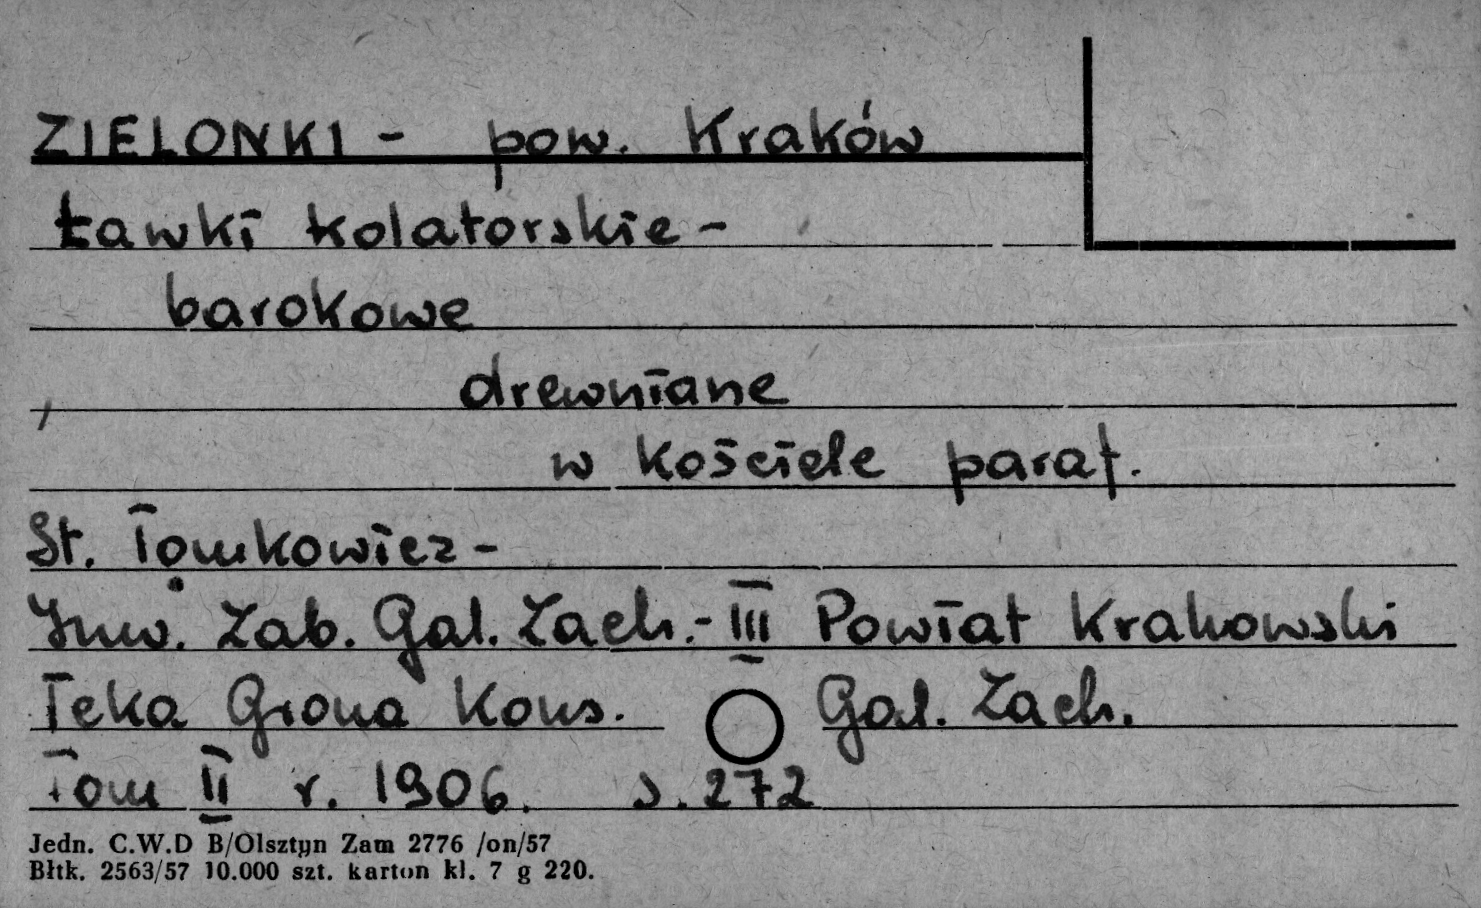 ZIELONKI - pow. Kraków
Ławki kolatorskie -
barokowe
drewniane
w kościele paraf.
St. Tomkowicz -
Inw. Zab. Gal. Zach. - III Powiat Krakowski
Teka Grona Kons. Gal. Zach.
Tom II r. 1906. s. 272
Jedn. C.W.D B/Olsztyn Zam 2776 /on/57
Błtk. 2563/57 10.000 szt. karton kl. 7 g 220.